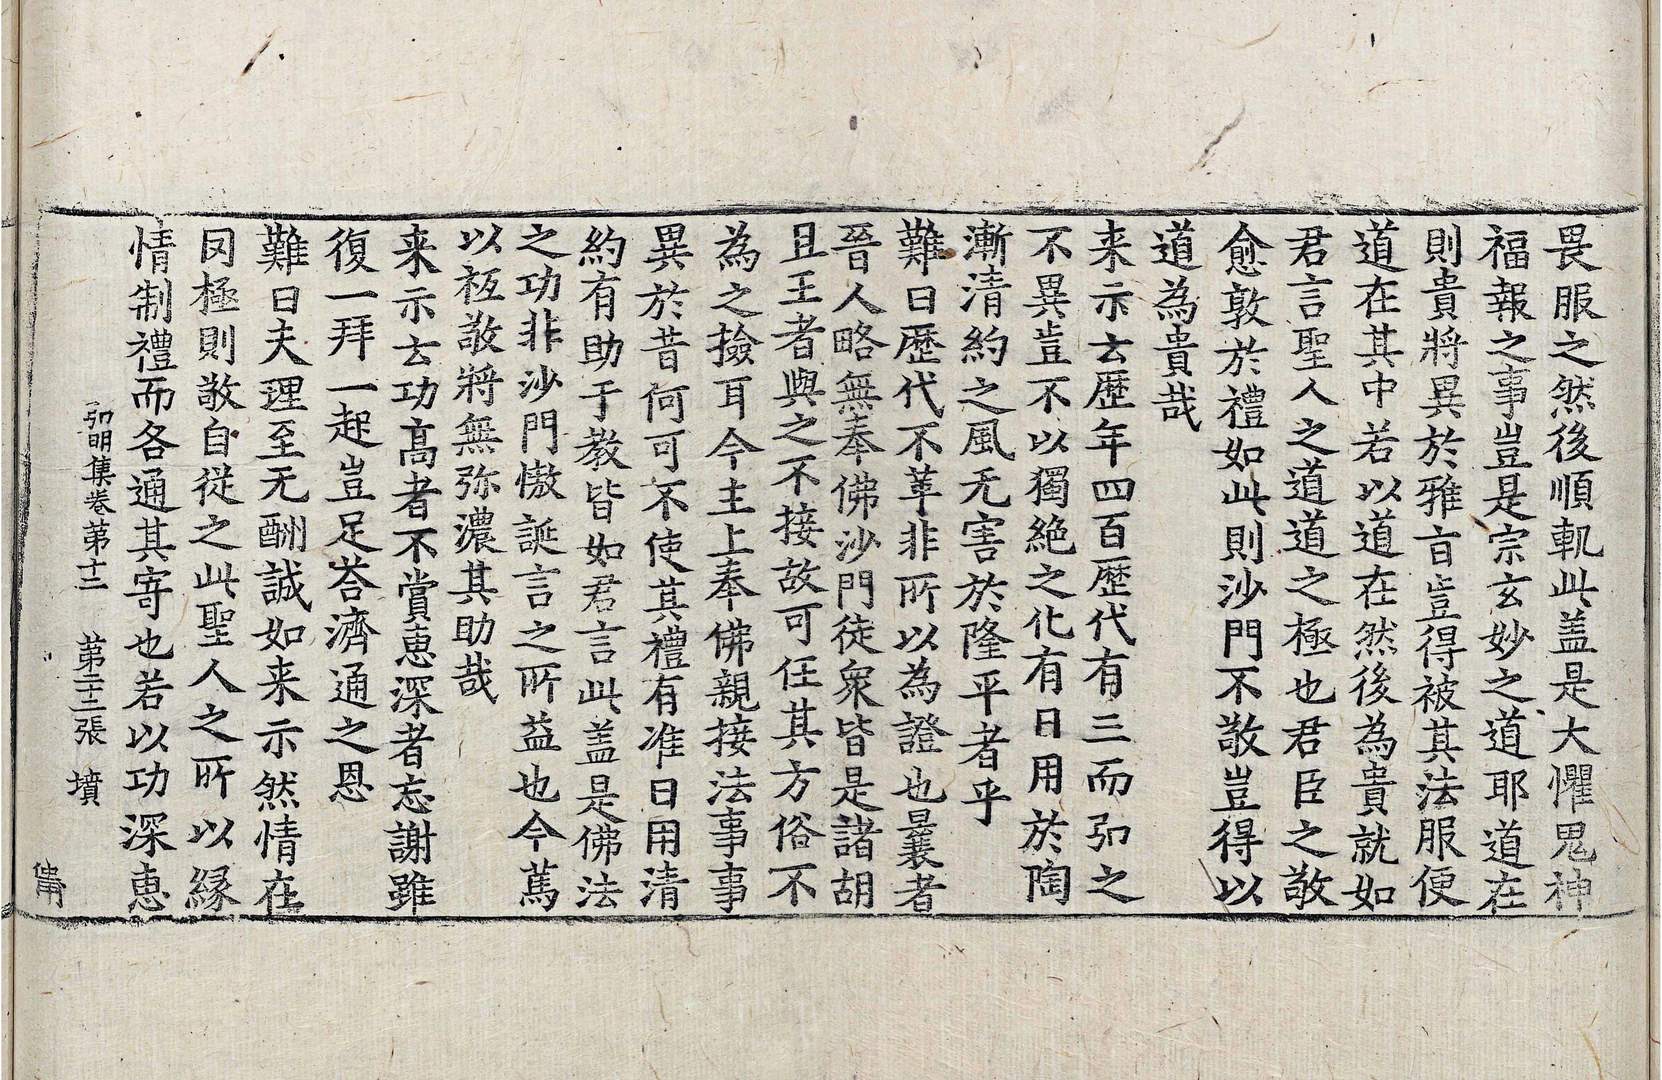 畏服之然後順軌此盖是大懼鬼神
福報之事豈是宗玄妙之道耶道在
則貴將異於雅旨豈得被其法服便
道在其中若以道在然後為貴就如
君言聖人之道道之極也君臣之敬
愈敦於禮如此則沙門不敬豈得以
道為貴哉
来示云歷年四百歷代有三而弘之
不異豈不以獨絶之化有日用於陶
漸清約之風无害於隆平者乎
難曰歷代不革非所以為證也曩者
晉人略無奉佛沙門徒衆皆是諸胡
且王者與之不接故可任其方俗不
為之撿耳今主上奉佛親接法事事
異於昔何可不使其禮有准日用清
約有助于教皆如君言此盖是佛法
之功非沙門慠誕言之所益也今萬
以祗敬將無弥濃其助哉
来示云功髙者不賞惠深者忘謝雖
復一拜一起豈足荅濟通之恩
難曰夫理至无酬誠如来示然情在
罔極則敬自從之此聖人之所以縁
情制禮而各通其寄也若以功深惠
弘明集卷第十二 第二十二張 墳